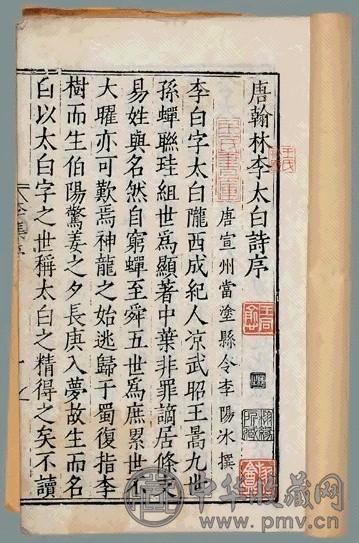 唐翰林李太白詩序
唐宣州當塗縣令李陽冰撰
李白字太白隴西成紀人凉武昭王暠九世
孫蟬聯珪組世爲顯著中葉非罪謫居條支
易姓與名然自窮蟬至舜五世爲庶累世不
大曜亦可歎焉神龍之始逃歸于蜀復指李
樹而生伯陽驚姜之夕長庚入夢故生而名
白以太白字之世稱太白之精得之矣不讀
中华收藏网
www.pmv.cn